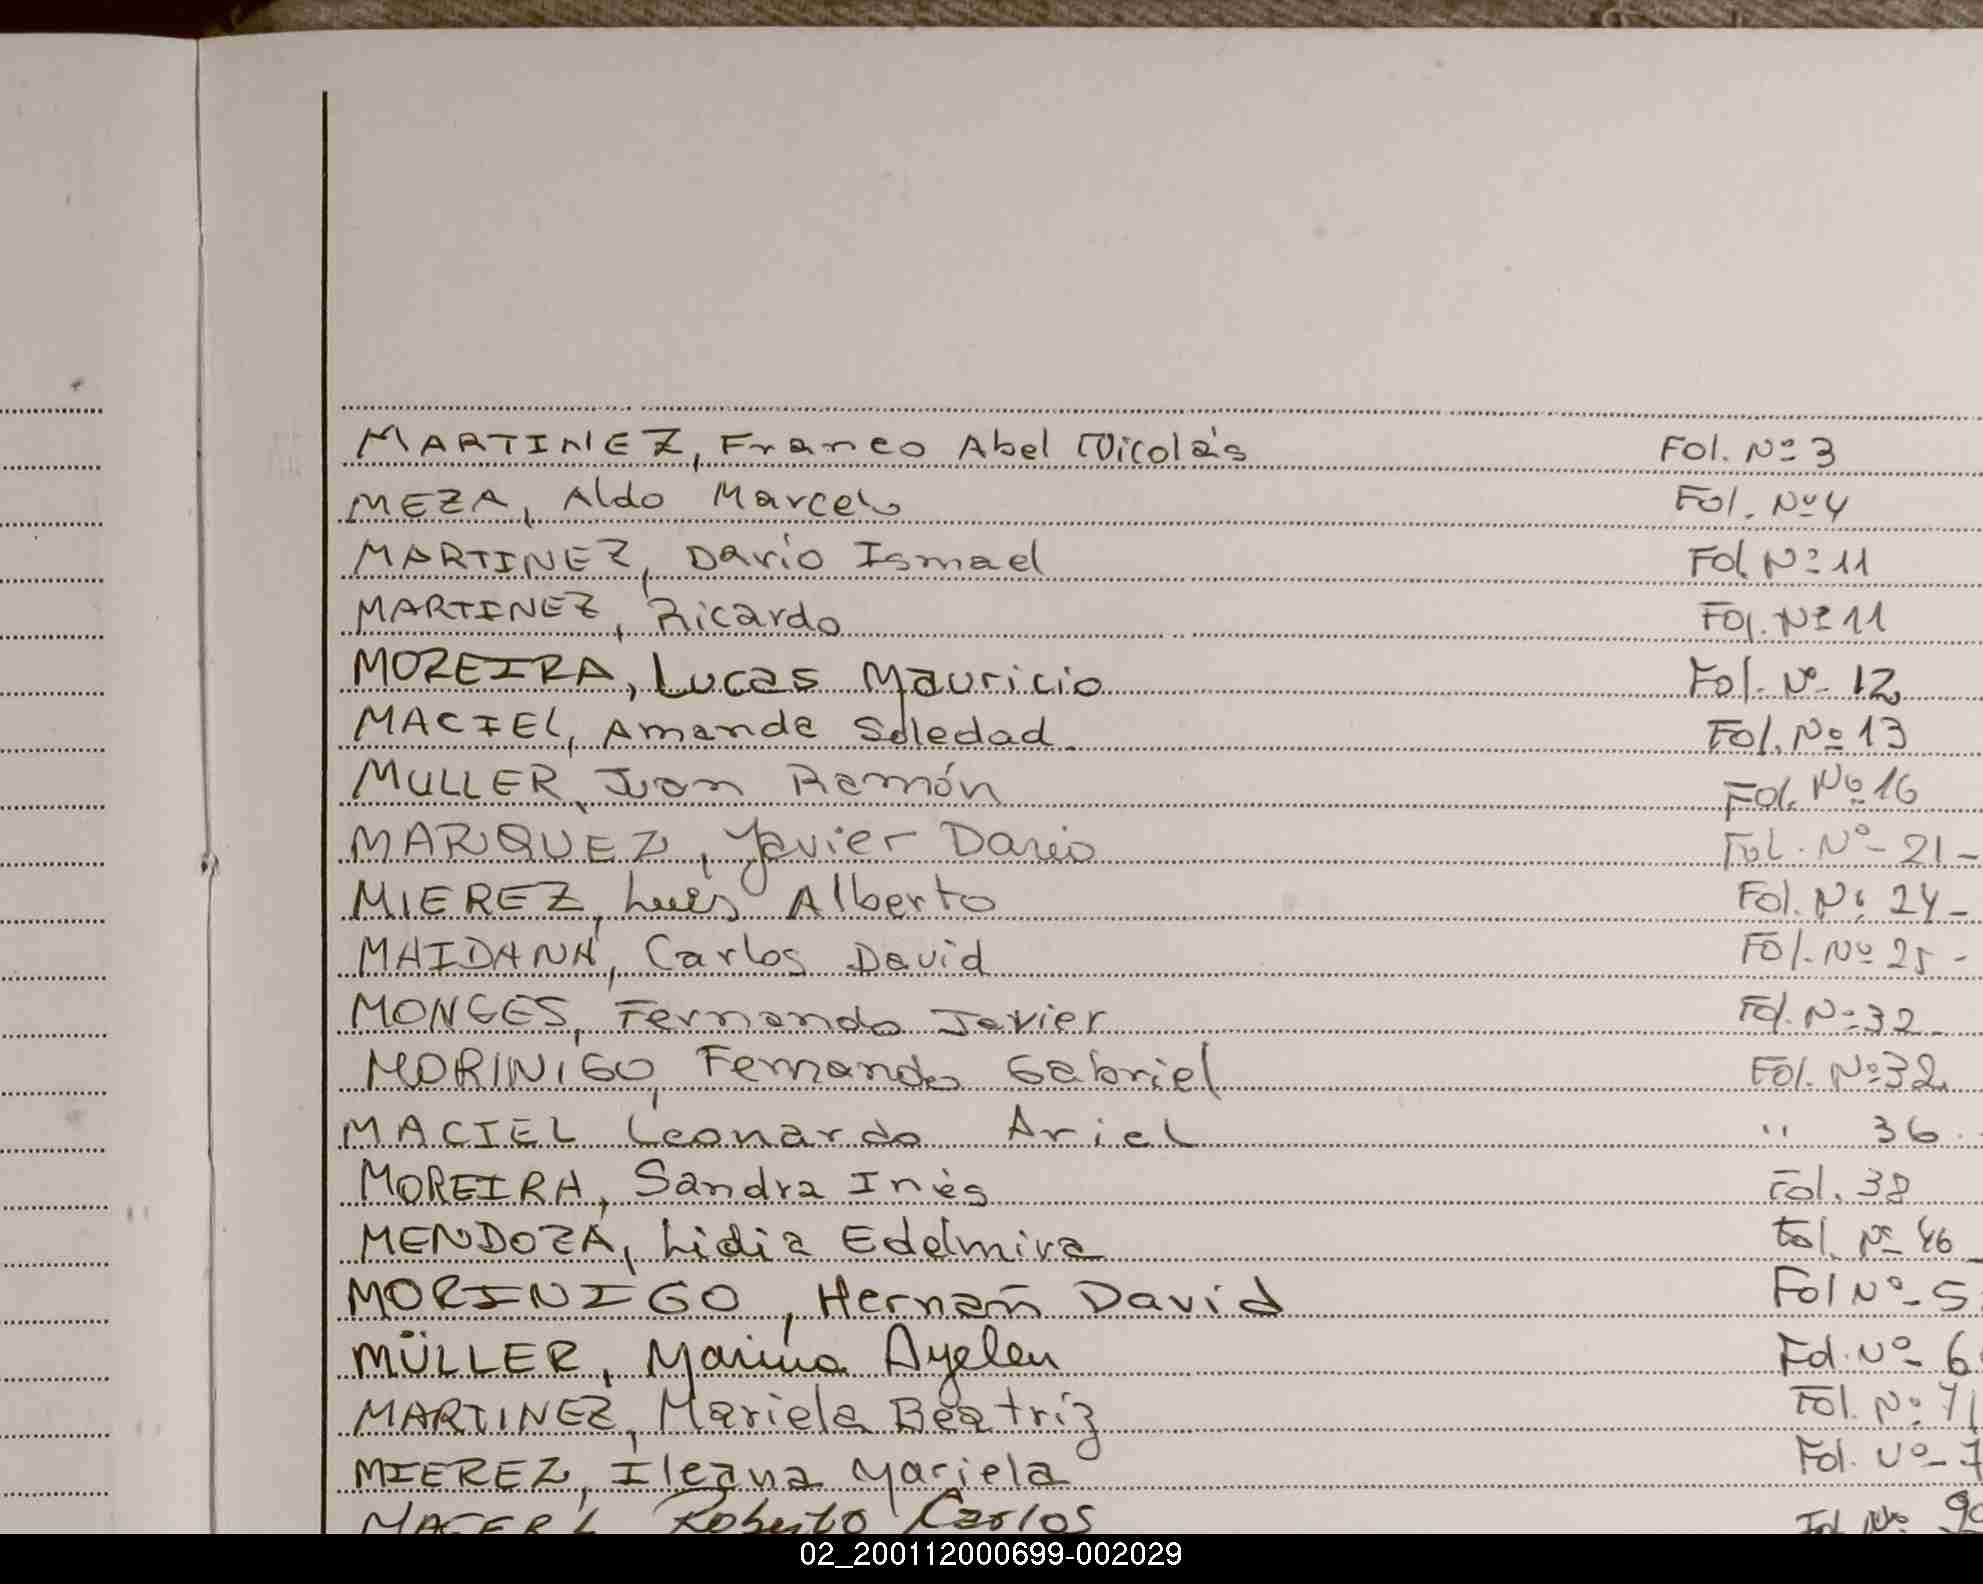 MARTINEZ, Franco Abel Nicolás Fol. Nº 3
MEZA, Aldo Marcelo Fol. Nº 4
MARTINEZ, Darío Ismael Fol. Nº 11
MARTINEZ, Ricardo Fol. Nº 11
MOREIRA, Lucas Mauricio Fol. Nº 12
MACIEL, Amanda Soledad. Fol. Nº 13
MULLER, Juan Ramón Fol. Nº 16
MARQUEZ, Javier Dario Fol. Nº 21 -
MIEREZ, Luis Alberto Fol. Nº 24 -
MAIDANA, Carlos David Fol. Nº 25 -
MONGES, Fernando Javier Fol. Nº 32 -
MORINIGO, Fernando Gabriel Fol. Nº 32
MACIEL Leonardo Ariel '' 36.
MOREIRA, Sandra Inés Fol. 38
MENDOZA, Lidia Edelmira Fol. Nº 46 -
MORINIGO, Hernán David Fol Nº 5
MÜLLER, Marina Ayelen Fol. Nº 6
MARTINEZ, Mariela Beatriz Fol. Nº 71
MIEREZ, Ileana Mariela Fol. Nº 7
Roberto Carlos Fol. Nº 90
02_200112000699-002029